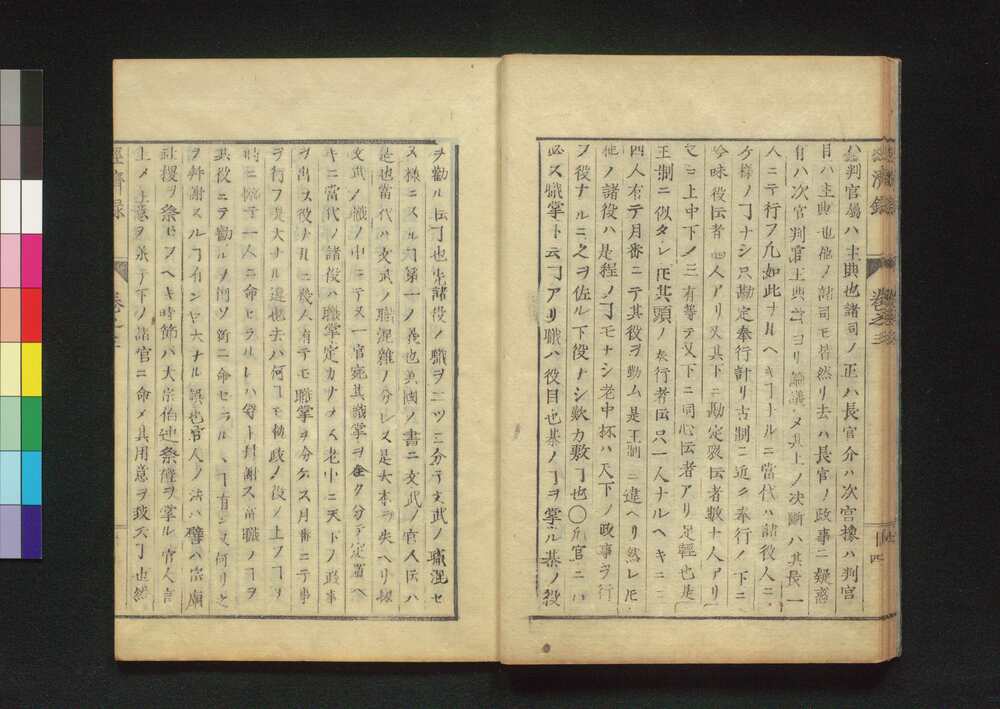 ハ判官屬ハ主典也諸司ノ正ハ長官介ハ次官掾ハ判官
目ハ主典也他ノ諸司モ皆然リ去ハ長官ノ政事ニ疑惑
有ハ次官判官主典 ヨリ論議 メ其上ノ決斷ハ其長一
人ニテ行フ凡如此ナルヘキヿトルニ當代ハ諸役人ニ
ケ樣ノヿナシ只勘定奉行計リ古制ニ近ク奉行ノ下ニ
吟味役伝者四人アリ又其下ニ勘定衆伝者數十人アリ
 上中下ノ三 有等テ又下ニ同心伝者アリ足輕也是
王制ニ似タレ圧其頭ノ奉行者伝只一人ナルヘキニ
四人有テ月番ニテ其役ヲ勤ム是王制ニ違ヘリ然レ圧
他ノ諸役ハ是程ノヿモナシ老中抔ハ天下ノ政事ヲ行
フ役ナルニ之ヲ佐ル下役ナシ歎カ敷ヿ也〇 官ニハ
必ス職掌ト云ヿアリ職ハ役目也其ノヿヲ掌ル其ノ役
經濟録 卷之三 四
ヲ勸ル伝ヿ也先諸役ノ職ヲ二ツ三分テ文武ノ職混セ
ス樣ニスルヿ第一ノ義也異國ノ書ニ文武ノ官人伝ハ
是也當代ハ文武ノ職混雜ノ分レス是大本ヲ失ヘリ
文武ノ職ノ中ニテ又一官宛其職掌ヲ全ク分テ定置ヘ
キニ當代ノ諸役ハ職掌定カナメ老中ニ天下ノ政事
ヲ出ス役ナルニ數人有テモ職掌ヲ分タス月番ニテ事
ヲ行フ 大ナル違也去ハ何ヿモ 政ノ役ノ上フヿヲ
時ニ 一人ニ命セラルレハ ト拜謝ス 職ノヿヲ
武役ニテ勸ルヲ 新ニ命セラルヽヿ有ニ又何リと
ヲ拜謝スルヿ有ンヤ大ナル誤也官人ノ法ハ譬ハ宗廟
社稷ヲ祭セラヘキ時節ハ大宗伯 祭禮ヲ掌ル官人言
上メ上意ヲ承テ下ノ諸官ニ命メ其用意ヲ致スヿ也然
經濟録 卷之三